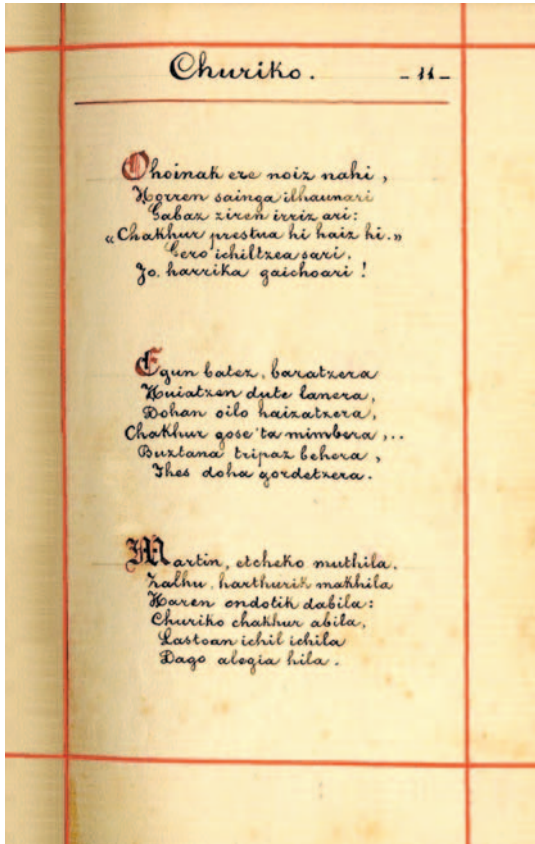 Churiko. - 11 -
Ohoinak ere noiz nahi,
Horren sainga ilhaunari
Gabaz ziren irriz ari:
« Chakhur prestua hi haiz hi. »
Gero ichiltzea sari,
Jo, harrika gaichoari !
Egun batez, baratzera
Huiatzen dute lanera,
Dohan oilo haizatzera,
Chakhur gose 'ta mimbera,..
Buztana tripaz behera,
Ihes doha gordetzera.
Martin, etcheko muthila,
Zalhu, harthurik makhila
Haren ondotik dabila:
Churiko chakhur abila,
Lastoan ichil ichila
Dago alegia hila.